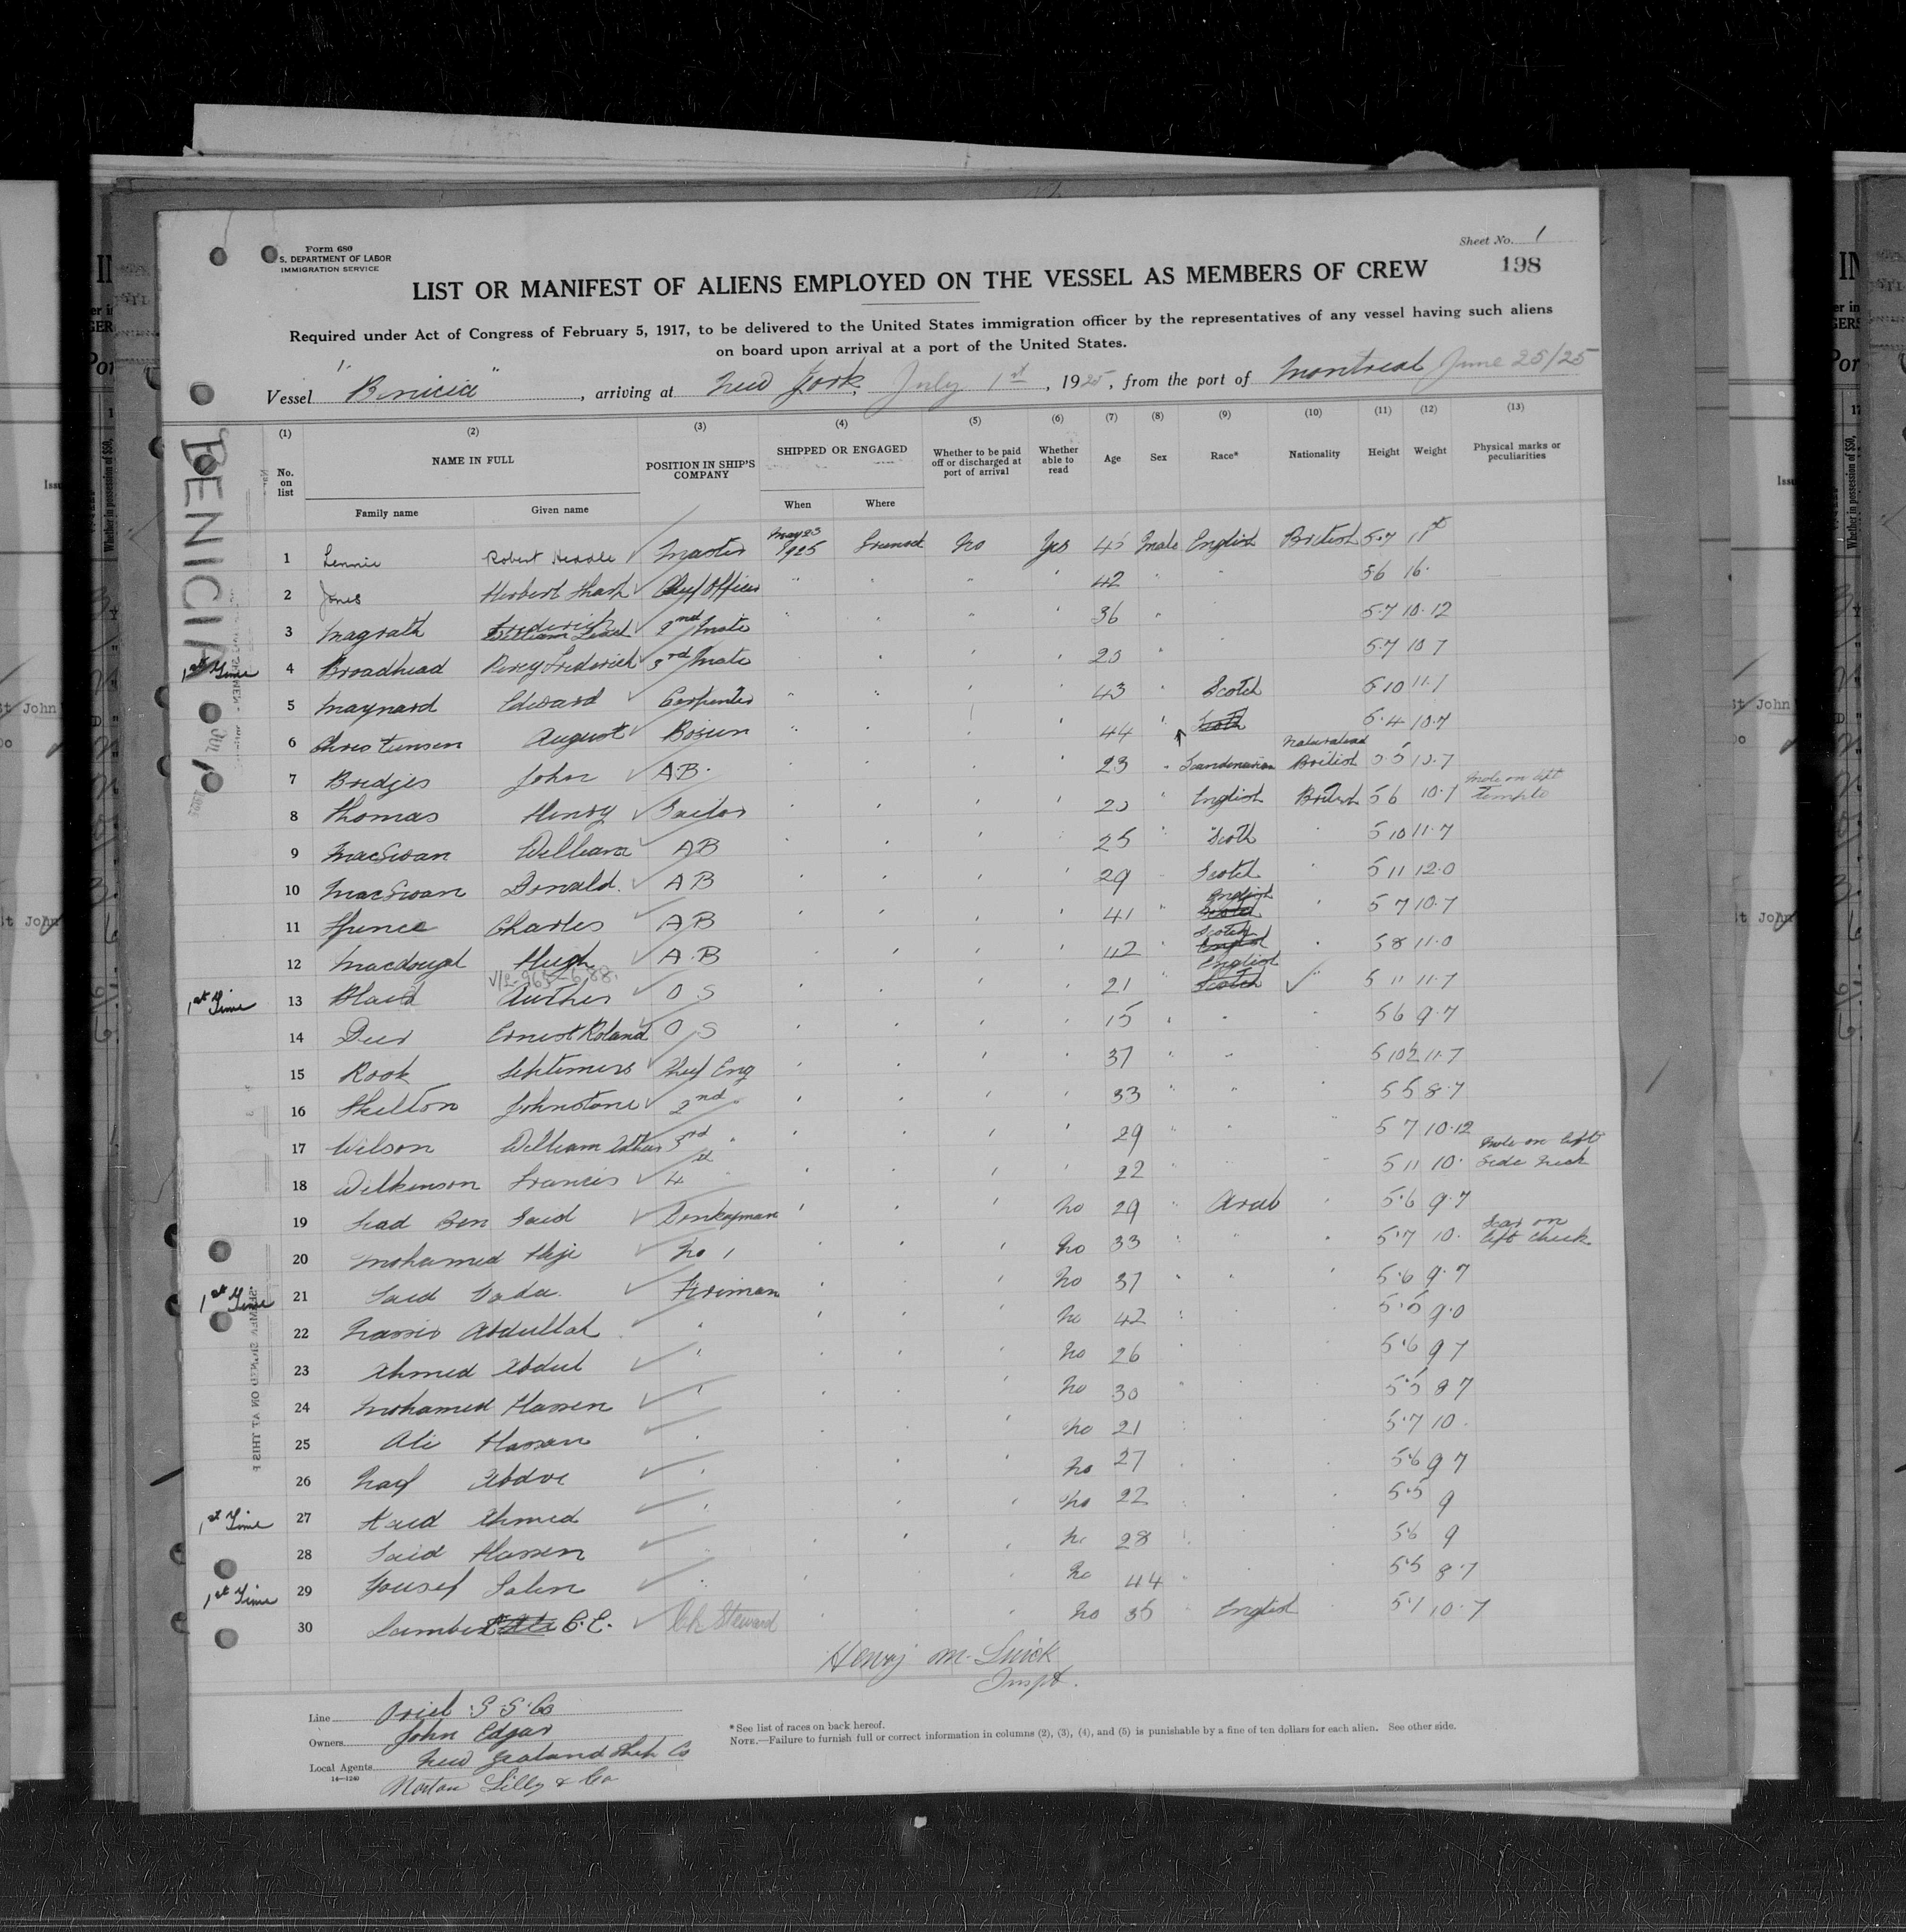 Form 680
S. DEPARTMENT OF LABOR
IMMIGRATION SERVICE
Sheet No. 1
198
LIST OR MANIFEST OF ALIENS EMPLOYED ON THE VESSEL AS MEMBERS OF CREW
Required under Act of Congress of February 5, 1917, to be delivered to the United States immigration officer by the representatives of any vessel having such aliens
on board upon arrival at a port of the United States.
Vessel "Benicia", arriving at New York, July 1st, 1925, from the port of Montreal June 25/25
BENICIA
(1) (2) (3) (4) (5) (6) (7) (8) (9) (10) (11) (12) (13)
No. on list NAME IN FULL POSITION IN SHIP'S COMPANY SHIPPED OR ENGAGED Whether to be paid off or discharged at port of arrival Whether able to read Age Sex Race* Nationality Height Weight Physical marks or peculiarities
Family name Given name When Where
1 Lennie Robert Heddle Master May 23 1925 No Yes 45 Male English British 5.7 11st
2 Jones Herbert Chief Officer " " " " 42 " " 5 6 16.
3 Magrath Frederick William Lionel 2nd Mate " " " " 36 " " 5.7 10.12
1st Time 4 Broadhead Percy Frederick 3rd Mate 20 " 5.7 10 7
5 Maynard Edward Carpenter " " " " 43 " Scotch 5 10 11.7
6 Christensen August Bosun " " " " 44 " Scotch 5.4 10.7
7 Bridges John A.B. 23 " Scandinavian Naturalised British 5.5 10.7
8 Thomas Henry Sailor 20 " English British 5 6 10.7 Mole on left temple
9 MacSwan William AB 25 " Scotch 5 10 11.7
10 MacSwan Donald. AB 29 Scotch " 5 11 12.0
11 Spence Charles AB 41 " English Scotch " 5 7 10.7
12 Macdougal Hugh A.B 42 Scotch English 5 8 11.0
1st Time 13 Arther O S 21 " English Scotch 5 11 11.7
14 Ernest Roland O S 15 " " 5 6 9.7
15 Rook Septimus Chief Eng 37 " " 5 10½ 11.7
16 Skelton Johnstone 2nd " 33 " " 5 5 8.7
17 Wilson William Arthur 3rd " 29 " 5 7 10.12
18 Wilkinson Francis 4th 22 5 11 10. Mole on left side neck
19 Said Ben Said Donkeyman No 29 " Arab " 5.6 9.7
20 Mohamed Heji No 1 No 33 " " " 5.7 10. Scar on left cheek
1st Time 21 Said Fireman No 37 " " " 5.6 9.7
22 Nassir Abdullah " No 42 5.5 9.0
23 Ahmed Abdul " No 26 5.6 9 7
24 Mohamed Hassen " No 30 5.5 8 7
25 Ali Hassan " No 21 5.7 10
26 " No 27 5.6 9 7
1st Time 27 Ahmed " No 22 5.5 9
28 Said Hassen No 28 5.6 9
1st Time 29 Yousef Salem " No 44 5.5 8.7
30 C.E. Ch Steward No 35 English 5.7 10.7
Inspt.
Line Oriel S.S. Co
Owners John Edgar
Local Agents New Zealand Ship Co
Norton Lilly & Co
14—1240
*See list of races on back hereof.
NOTE.—Failure to furnish full or correct information in columns (2), (3), (4), and (5) is punishable by a fine of ten dollars for each alien. See other side.